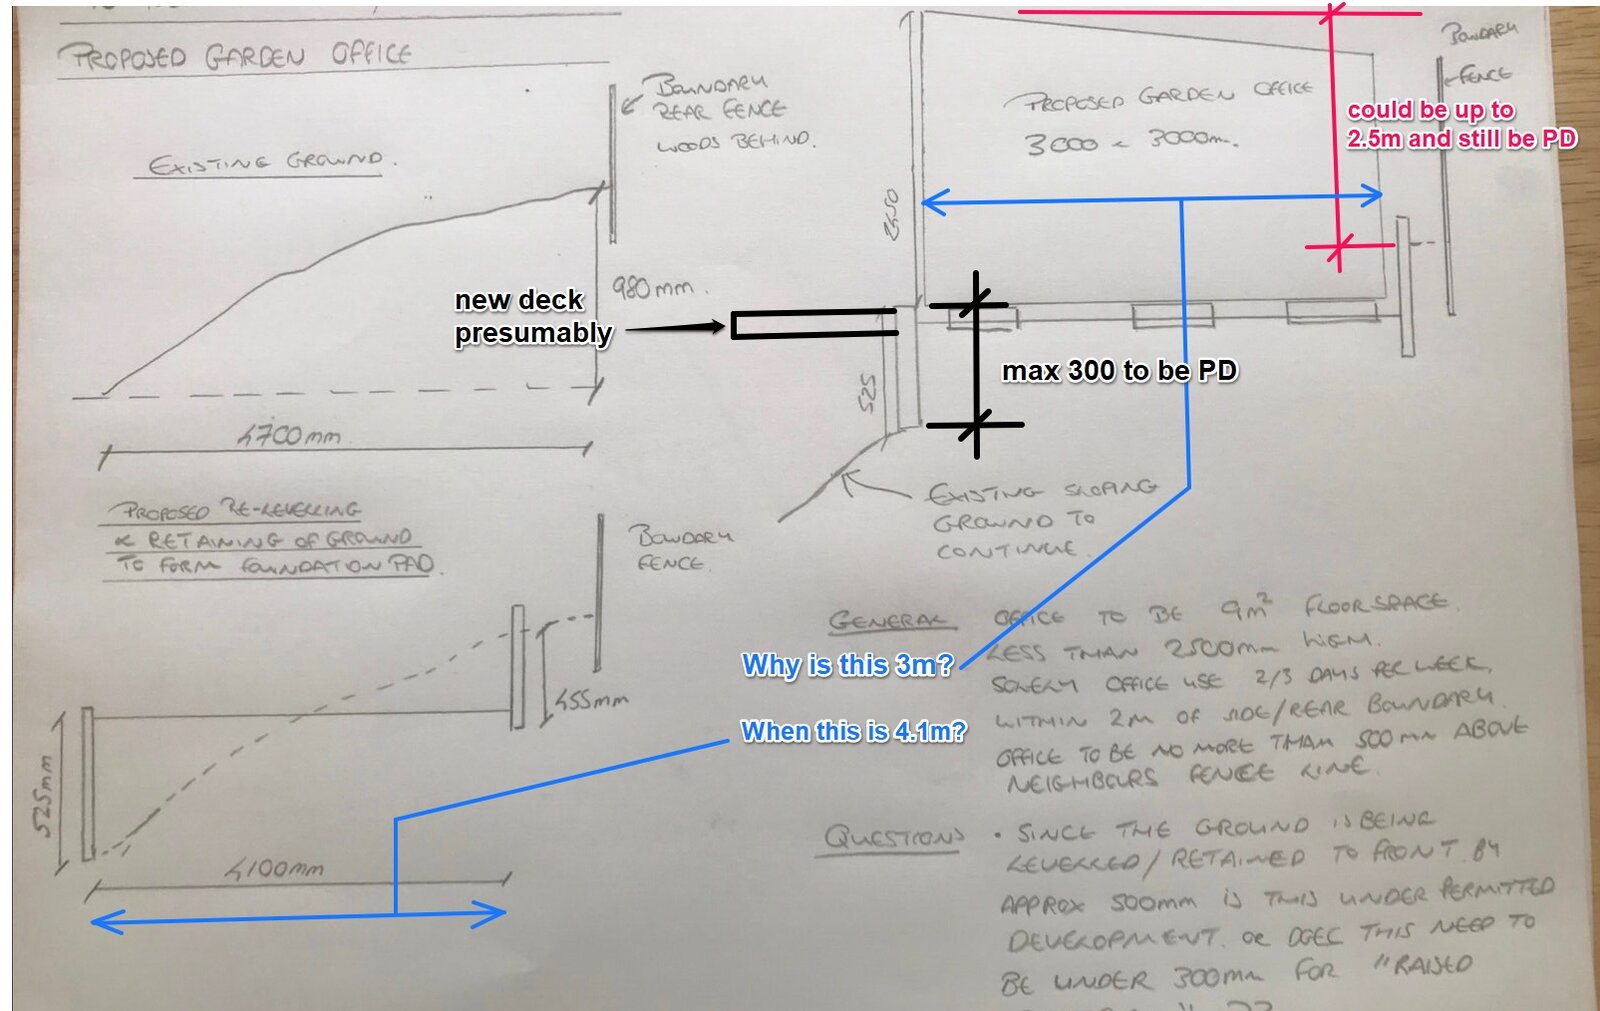 PROPOSED GARDEN OFFICE
EXISTING GROUND.
BOUNDARY
REAR FENCE
WOODS BEHIND.
980mm.
4700mm
new deck
presumably
PROPOSED GARDEN OFFICE
3000 x 3000m.
BOUNDARY
FENCE
could be up to
2.5m and still be PD
2450
525
max 300 to be PD
EXISTING SLOPING
GROUND TO
CONTINUE.
PROPOSED RE-LEVELLING
& RETAINING OF GROUND
TO FORM FOUNDATION PAD.
BOUNDARY
FENCE.
455mm
525mm
4100mm
Why is this 3m?
When this is 4.1m?
GENERAL
OFFICE TO BE 9m² FLOORSPACE.
LESS THAN 2500mm HIGH.
SOLELY OFFICE USE 2/3 DAYS PER WEEK,
WITHIN 2M OF SIDE/REAR BOUNDARY.
OFFICE TO BE NO MORE THAN 500mm ABOVE
NEIGHBOURS FENCE LINE.
QUESTIONS
• SINCE THE GROUND IS BEING
LEVELLED/RETAINED TO FRONT BY
APPROX 500mm IS THIS UNDER PERMITTED
DEVELOPMENT. OR DOES THIS NEED TO
BE UNDER 300mm FOR "RAISED